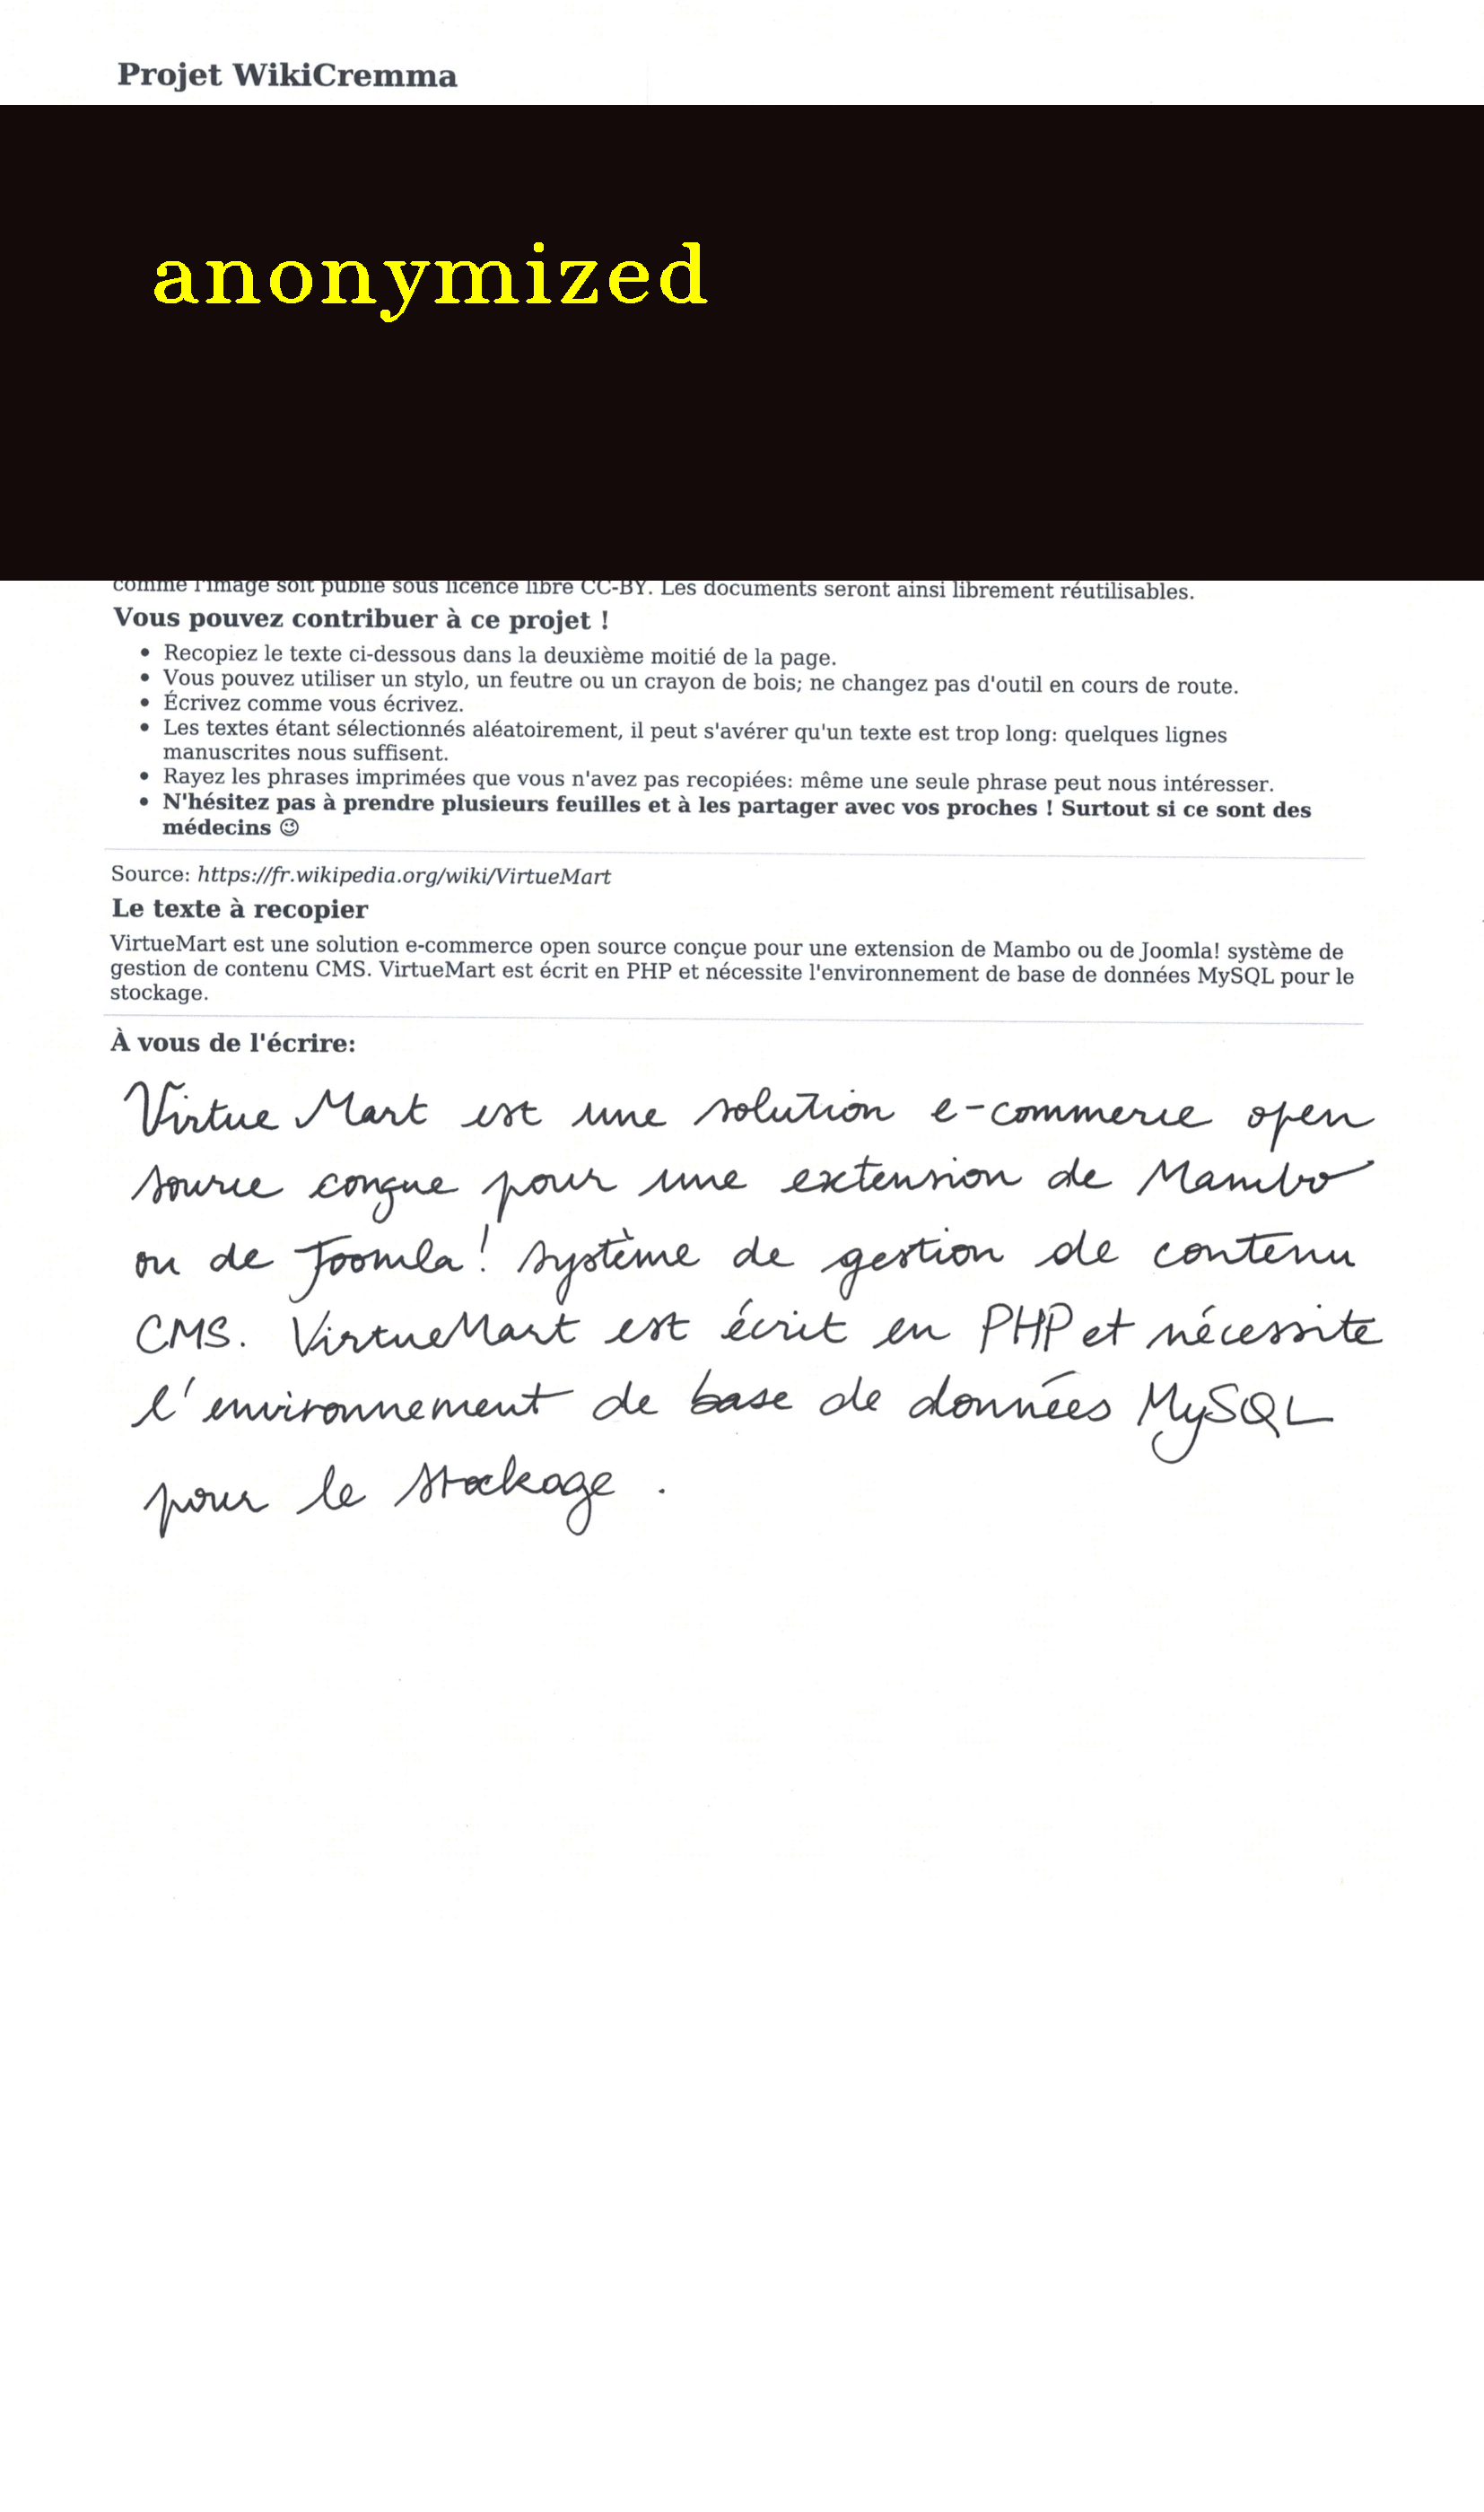 Projet WikiCremma
anonymized
comme l'image soit publié sous licence libre CC-BY. Les documents seront ainsi librement réutilisables.
Vous pouvez contribuer à ce projet !
• Recopiez le texte ci-dessous dans la deuxième moitié de la page.
• Vous pouvez utiliser un stylo, un feutre ou un crayon de bois; ne changez pas d'outil en cours de route.
• Écrivez comme vous écrivez.
• Les textes étant sélectionnés aléatoirement, il peut s'avérer qu'un texte est trop long: quelques lignes
manuscrites nous suffisent.
• Rayez les phrases imprimées que vous n'avez pas recopiées: même une seule phrase peut nous intéresser.
• N'hésitez pas à prendre plusieurs feuilles et à les partager avec vos proches ! Surtout si ce sont des
médecins ☺
Source: https://fr.wikipedia.org/wiki/VirtueMart
Le texte à recopier
VirtueMart est une solution e-commerce open source conçue pour une extension de Mambo ou de Joomla! système de
gestion de contenu CMS. VirtueMart est écrit en PHP et nécessite l'environnement de base de données MySQL pour le
stockage.
À vous de l'écrire:
Virtue Mart est une solution e-commerce open
source conçue pour une extension de Mambo
ou de Joomla! système de gestion de contenu
CMS. VirtueMart est écrit en PHP et nécessite
l'environnement de base de données MySQL
pour le stockage .